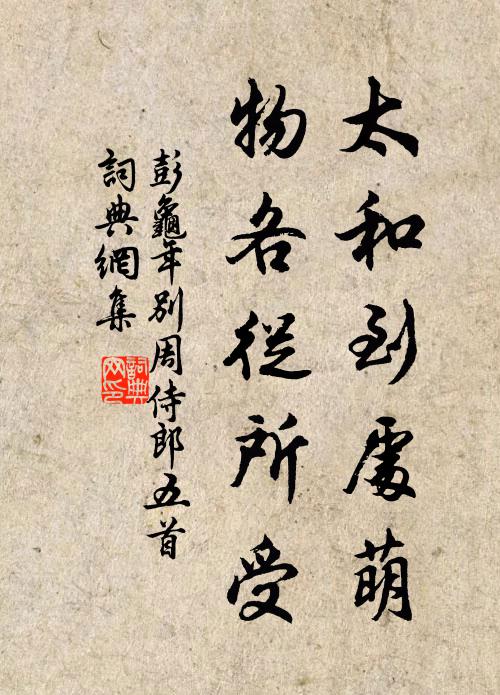 太和到處萌
物各從所受
彭龜年別周侍郎五首
詞典網集
詞典网印